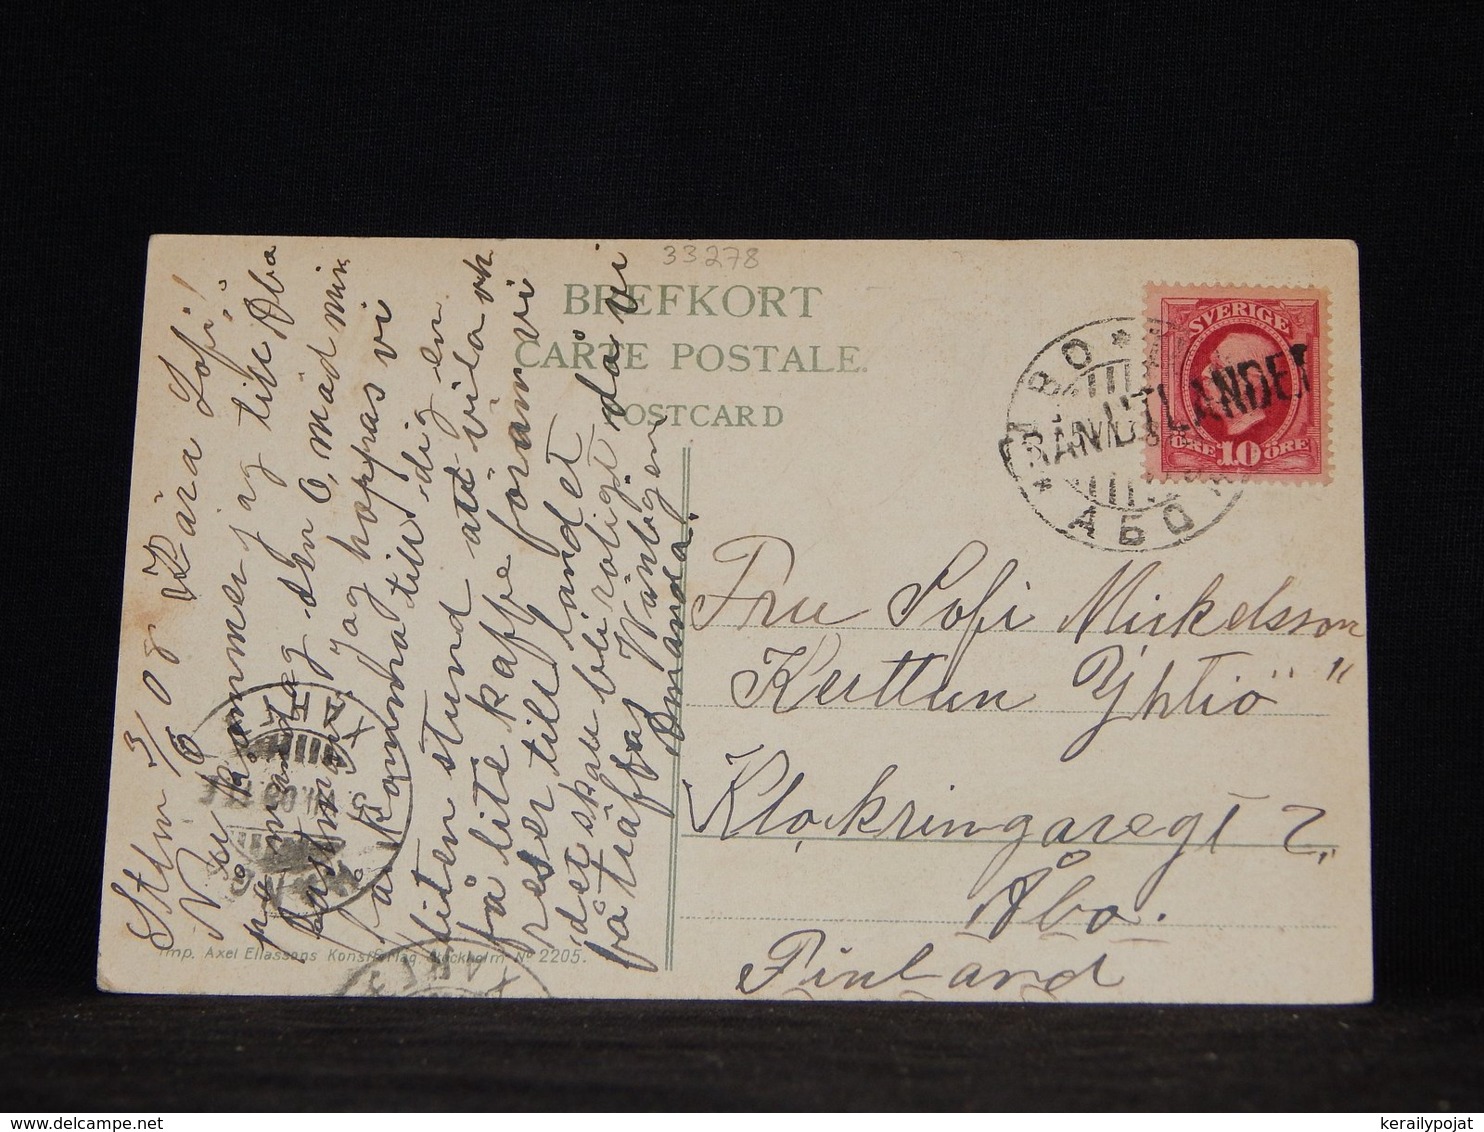 33278
BREFKORT
CARTE POSTALE.
POSTCARD
SVERIGE
ÖRE 10 ÖRE
FRÅN UTLANDET
ABO
АБО
Sthm 3/6 09
Kära Sofi!
Nu kommer jag till Åbo
på måndag den 6, med min
Jag hoppas vi
få komma till dig en
liten stund att vila och
få lite kaffe förän vi
reser till landet
det skall bli roligt då vi
få träffas Vänligen
Amanda.
Fru Sofi Mickelsson
Kerttun Yhtiö "
Klockringaregt 2,
Åbo.
Finland
Imp. Axel Eliassons Konstförlag, Stockholm. No 2205.
kerailypojat